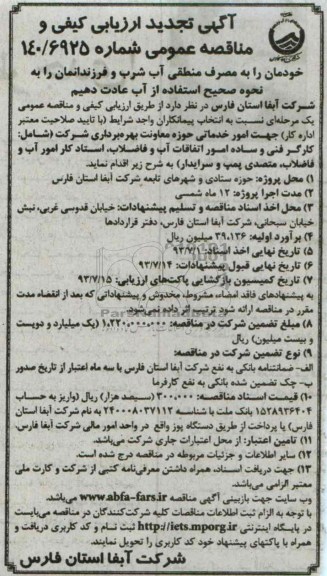 آگهی تجدید ارزیابی کیفی و
مناقصه عمومی شماره ۱۴۰/۶۹۲۵
خودمان را به مصرف منطقی آب شرب و فرزندانمان را به
نحوه صحیح استفاده از آب عادت دهیم
شرکت آبفا استان فارس در نظر دارد از طریق ارزیابی کیفی و مناقصه عمومی
یک مرحله‌ای نسبت به انتخاب پیمانکاران واجد شرایط (با تایید صلاحیت معتبر
اداره کار) جهت امور خدماتی حوزه معاونت بهره‌برداری شرکت (شامل:
کارگر فنی و ساده امور اتفاقات آب و فاضلاب، استاد کار امور آب و
فاضلاب، متصدی پمپ و سرایدار) به شرح زیر اقدام نماید.
۱) محل پروژه: حوزه ستادی و شهرهای تابعه شرکت آبفا استان فارس
۲) مدت اجرا پروژه: ۱۲ ماه شمسی
۳) محل اخذ اسناد مناقصه و تسلیم پیشنهادات: خیابان قدوسی غربی، نبش
خیابان سبحانی، شرکت آبفا استان فارس، دفتر قراردادها
۴) برآورد اولیه: ۳۹،۱۳۶ میلیون ریال
۵) تاریخ نهایی اخذ اسناد: ۹۳/۷/۱
۶) تاریخ نهایی قبول پیشنهادات: ۹۳/۷/۱۴
۷) تاریخ کمیسیون بازگشایی پاکت‌های ارزیابی: ۹۳/۷/۱۵
به پیشنهادهای فاقد امضاء، مشروط، مخدوش و پیشنهاداتی که بعد از انقضاء مدت
مقرر در مناقصه ارائه شود ترتیب اثر داده نمی‌شود.
۸) مبلغ تضمین شرکت در مناقصه: ۱،۲۲۰،۰۰۰،۰۰۰ (یک میلیارد و دویست
و بیست میلیون) ریال
۹) نوع تضمین شرکت در مناقصه:
الف- ضمانتنامه بانکی به نفع شرکت آبفا استان فارس با سه ماه اعتبار از تاریخ صدور
ب- چک تضمین شده بانکی به نفع کارفرما
۱۰) قیمت اسناد مناقصه: ۳۰۰،۰۰۰ (سیصد هزار) ریال (واریز به حساب
۱۵۲۸۹۳۶۴۰۴ بانک ملت با شناسه ۲۴۰۰۰۸۰۳۷۱۱۲ به نام شرکت آبفا استان
فارس) یا پرداخت از طریق دستگاه پوز واقع در واحد امور مالی شرکت آبفا فارس.
۱۱) تامین اعتبار: از محل اعتبارات جاری شرکت می‌باشد.
۱۲) سایر اطلاعات و جزئیات مربوطه در مناقصه درج شده است.
۱۳) جهت دریافت اسناد، همراه داشتن معرفی‌نامه کتبی از شرکت و کارت ملی
معتبر الزامی می‌باشد.
وب سایت جهت بازبینی آگهی مناقصه www.abfa-fars.ir می‌باشد.
با توجه به الزام ثبت اطلاعات مناقصات کلیه شرکت‌کنندگان در مناقصه می‌بایست
در پایگاه اینترنتی http://iets.mporg.ir ثبت نام و کد کاربری دریافت و
همراه با پاکتهای پیشنهاد خود کد کاربری را تحویل نمایند.
شرکت آبفا استان فارس